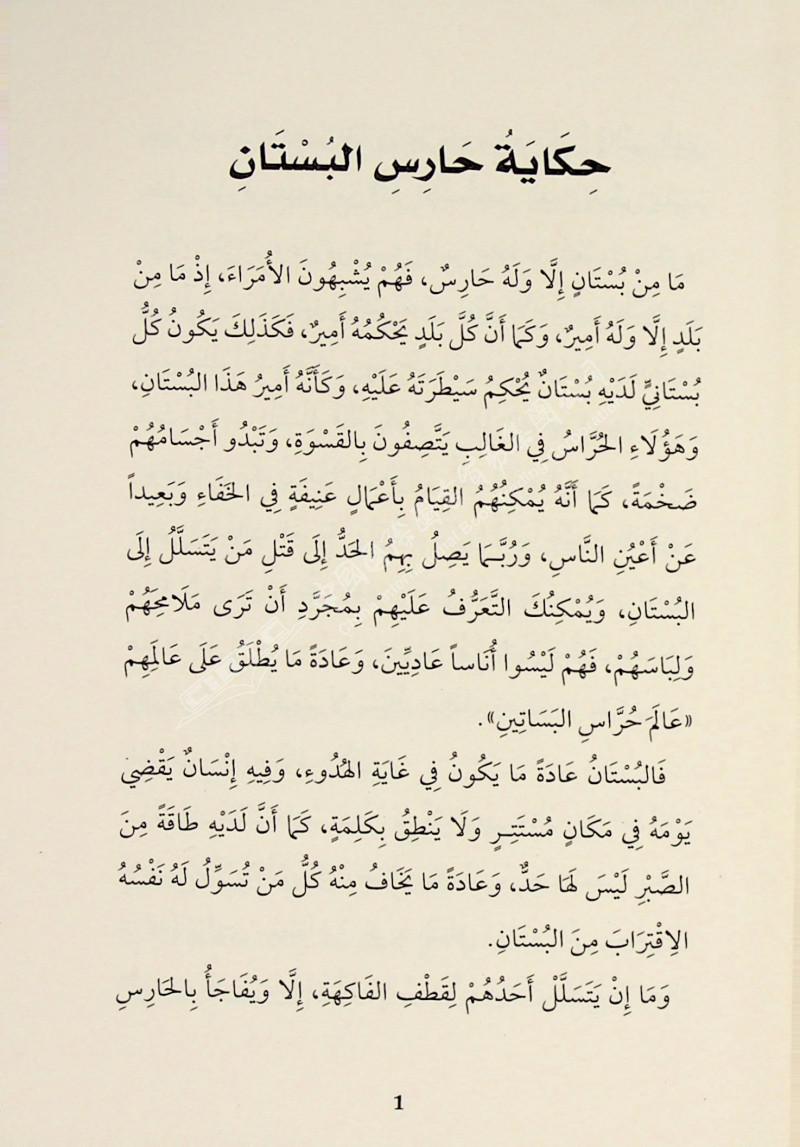 حِكَايَةُ حَارِسِ البُسْتَانِ
مَا مِنْ بُسْتَانٍ إِلَّا وَلَهُ حَارِسٌ، فَهُمْ يُشْبِهُونَ الأُمَرَاءَ، إِذْ مَا مِنْ
بَلَدٍ إِلَّا وَلَهُ أَمِيرٌ، وَكَمَا أَنَّ كُلَّ بَلَدٍ يَحْكُمُهُ أَمِيرٌ، فَكَذَلِكَ يَكُونُ كُلُّ
بُسْتَانِيٍّ لَدَيْهِ بُسْتَانٌ يُحْكِمُ سَيْطَرَتَهُ عَلَيْهِ، وَكَأَنَّهُ أَمِيرُ هَذَا البُسْتَانِ،
وَهَؤُلَاءِ الحُرَّاسُ فِي الغَالِبِ يَتَّصِفُونَ بِالقَسْوَةِ، وَتَبْدُو أَجْسَامُهُمْ
ضَخْمَةً، كَمَا أَنَّهُ يُمْكِنُهُمُ القِيَامُ بِأَعْمَالٍ عَنِيفَةٍ فِي الخَفَاءِ وَبَعِيداً
عَنْ أَعْيُنِ النَّاسِ، وَرُبَّمَا يَصِلُ بِهِمُ الحَدُّ إِلَى قَتْلِ مَنْ يَتَسَلَّلُ إِلَى
البُسْتَانِ، وَيُمْكِنُكَ التَّعَرُّفُ عَلَيْهِمْ بِمُجَرَّدِ أَنْ تَرَى مَلَامِحَهُمْ
وَلِبَاسَهُمْ، فَهُمْ لَيْسُوا أُنَاساً عَادِيِّينَ، وَعَادَةً مَا يُطْلَقُ عَلَى عَالَمِهِمْ
«عَالَمَ حُرَّاسِ البَسَاتِينِ».
فَالبُسْتَانُ عَادَةً مَا يَكُونُ فِي غَايَةِ الهُدُوءِ، وَفِيهِ إِنْسَانٌ يَقْضِي
يَوْمَهُ فِي مَكَانٍ مُسْتَتِرٍ وَلَا يَنْطِقُ بِكَلِمَةٍ، كَمَا أَنَّ لَدَيْهِ طَاقَةً مِنَ
الصَّبْرِ لَيْسَ لَهَا حَدٌّ، وَعَادَةً مَا يَخَافُ مِنْهُ كُلُّ مَنْ تُسَوِّلُ لَهُ نَفْسُهُ
الِاقْتِرَابَ مِنَ البُسْتَانِ.
وَمَا إِنْ يَتَسَلَّلْ أَحَدُهُمْ لِقَطْفِ الفَاكِهَةِ، إِلَّا وَيُفَاجَأُ بِالحَارِسِ
1